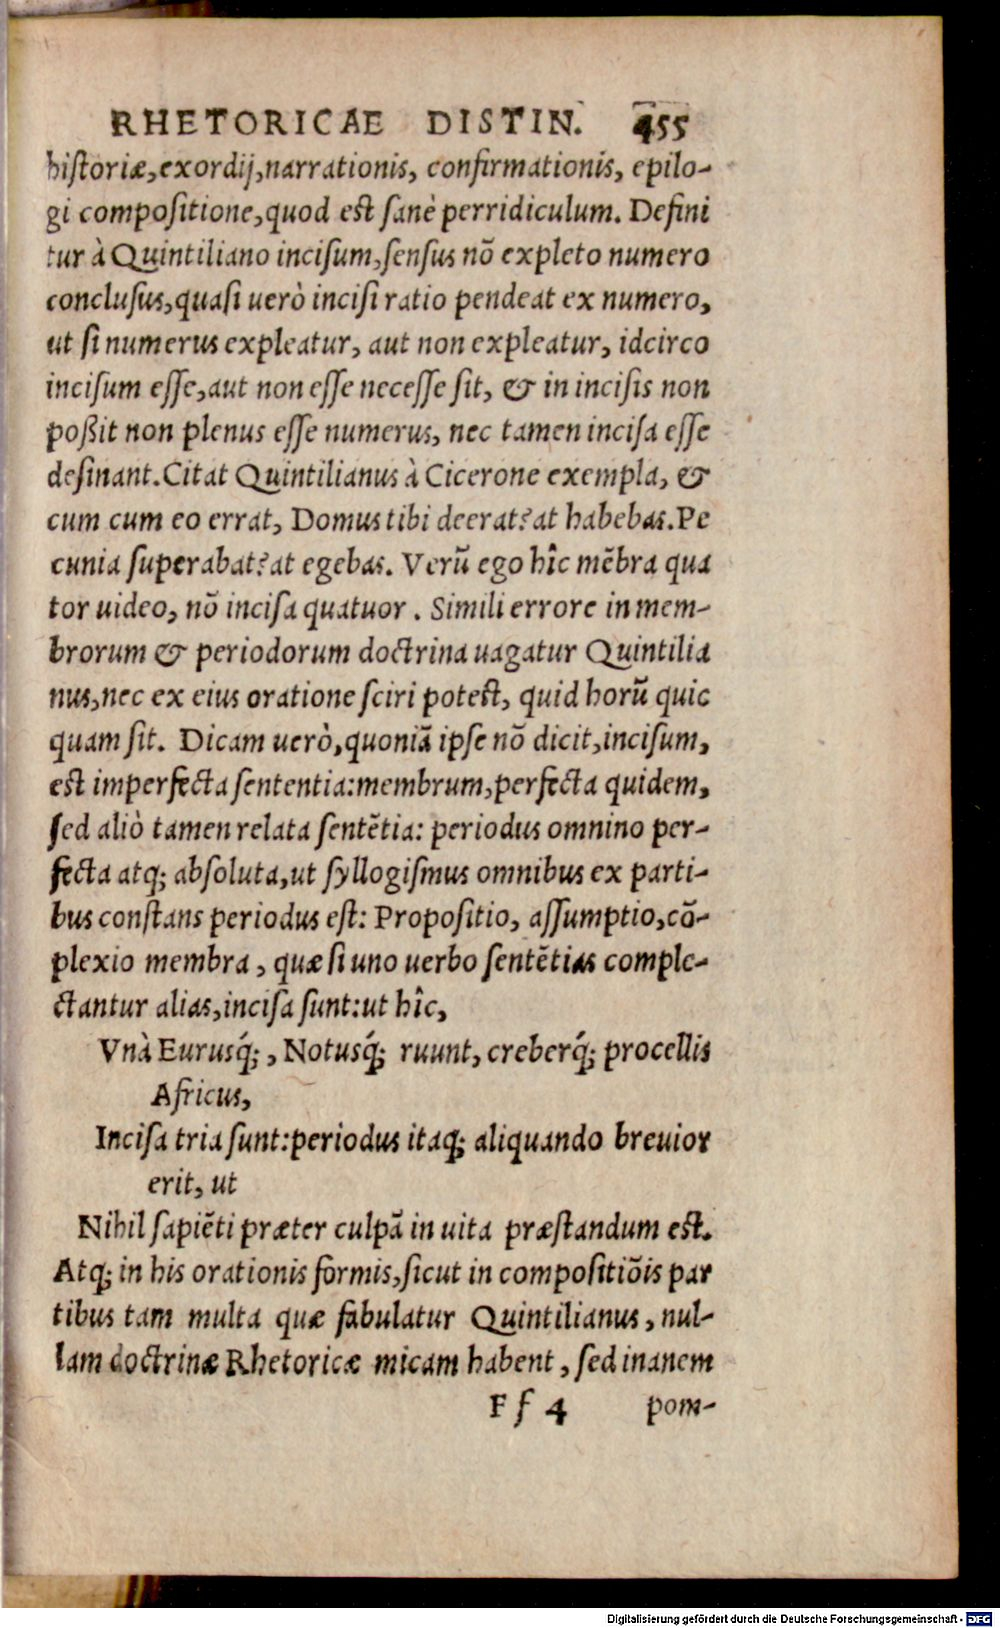 RHETORICAE DISTIN. 455
historiæ, exordij, narrationis, confirmationis, epilo-
gi compositione, quod est sanè perridiculum. Defini
tur à Quintiliano incisum, sensus nõ expleto numero
conclusus, quasi uerò incisi ratio pendeat ex numero,
ut si numerus expleatur, aut non expleatur, idcirco
incisum esse, aut non esse necesse sit, & in incisis non
poßit non plenus esse numerus, nec tamen incisa esse
desinant. Citat Quintilianus à Cicerone exempla, &
cum cum eo errat, Domus tibi deerat? at habebas. Pe
cunia superabat? at egebas. Verũ ego hîc mẽbra qua
tor uideo, nõ incisa quatuor. Simili errore in mem-
brorum & periodorum doctrina uagatur Quintilia
nus, nec ex eius oratione sciri potest, quid horũ quic
quam sit. Dicam uerò, quoniã ipse nõ dicit, incisum,
est imperfecta sententia: membrum, perfecta quidem,
sed aliò tamen relata sentẽtia: periodus omnino per-
fecta atq; absoluta, ut syllogismus omnibus ex parti-
bus constans periodus est: Propositio, assumptio, cõ-
plexio membra, quæ si uno uerbo sentẽtias comple-
ctantur alias, incisa sunt: ut hîc,
Vnà Eurusq́;, Notusq́; ruunt, creberq́; procellis
Africus,
Incisa tria sunt: periodus itaq; aliquando breuior
erit, ut
Nihil sapiẽti præter culpã in uita præstandum est.
Atq; in his orationis formis, sicut in compositiõis par
tibus tam multa quæ fabulatur Quintilianus, nul-
lam doctrinæ Rhetoricæ micam habent, sed inanem
F f 4 pom-
Digitalisierung gefördert durch die Deutsche Forschungsgemeinschaft - DFG